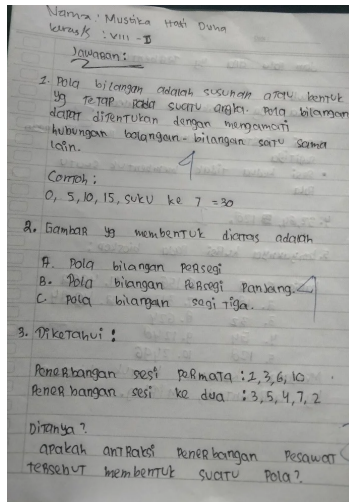 Nama : Mustika Hati Duha
Kelas/s : VIII - I
Jawaban :
1. Pola bilangan adalah susunan atau bentuk
yg tetap pada suatu angka. Pola bilangan
dapat ditentukan dengan mengamati
hubungan balangan-bilangan satu sama
lain.
4
Contoh :
0, 5, 10, 15, suku ke 7 = 30
2. Gambar yg membentuk diatas adalah
A. Pola bilangan persegi
B. Pola bilangan persegi panjang. 4
C. Pola bilangan segi tiga.
3. Diketahui :
Penerbangan sesi permata : 1, 3, 6, 10
Penerbangan sesi ke dua : 3, 5, 4, 7, 2
Ditanya ?
apakah antraksi penerbangan pesawat
tersebut membentuk suatu pola ?